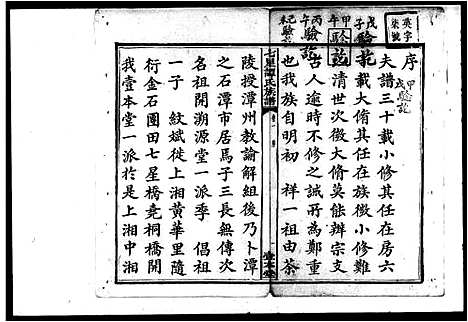 英字
柒號
戊子驗訖
甲午驗訖
丙午驗訖
己
甲戌驗訖
序
夫譜三十載小修其任在房六
十載大脩其任在族徵小修難
清世次徵大脩莫能辨宗支
古人逾時不修之誡所為鄭重
也我族自明初 祥一祖由茶
七星譚氏族譜
卷一
壹本堂
陵授潭州教諭解組後乃卜潭
之石潭市居焉子三長無傳次
名祖開溯源堂一派季 倡祖
一子 紋斌徙上湘黃華里隨
衍金石團田七星橋堯桐橋開
我壹本堂一派於是上湘中湘